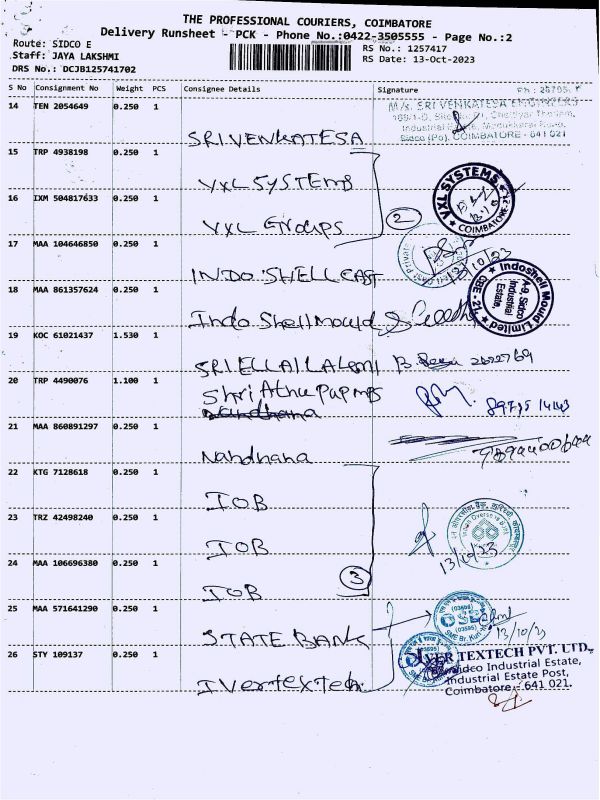 THE PROFESSIONAL COURIERS, COIMBATORE
Delivery Runsheet - PCK - Phone No.:0422-3505555 - Page No.:2
Route: SIDCO E
Staff: JAYA LAKSHMI
DRS No.: DCJB125741702
RS No.: 1257417
RS Date: 13-Oct-2023
S No Consignment No Weight PCS Consignee Details Signature
14 TEN 2054649 0.250 1
SRI VENKATESA
M/s. SRI VENKATESA ENGINEERS
Industrial
COIMBATORE - 641 021
15 TRP 4938198 0.250 1
VXL SYSTEMS
16 IXM 504817633 0.250 1
VXL GROUPS
2
VXL SYSTEMS
COIMBATORE-21
17 MAA 104646850 0.250 1
INDO SHELL CAST
13/10/23
18 MAA 861357624 0.250 1
Indo Shell Mould
Indoshell Mould Limited
A-9, Sidco
Industrial
Estate,
CBE - 21
19 KOC 61021437 1.530 1
20 TRP 4490076 1.100 1
Nandhana
21 MAA 860891297 0.250 1
Nandhana
22 KTG 7128618 0.250 1
IOB
23 TRZ 42498240 0.250 1
IOB
13/10/23
24 MAA 106696380 0.250 1
IOB
3
25 MAA 571641290 0.250 1
STATE BANK
(03595)
SME Br. Kuri
13/10/23
26 STY 109137 0.250 1
IVertexTech
IVERTEXTECH PVT. LTD.,
Industrial Estate,
Industrial Estate Post,
Coimbatore - 641 021.